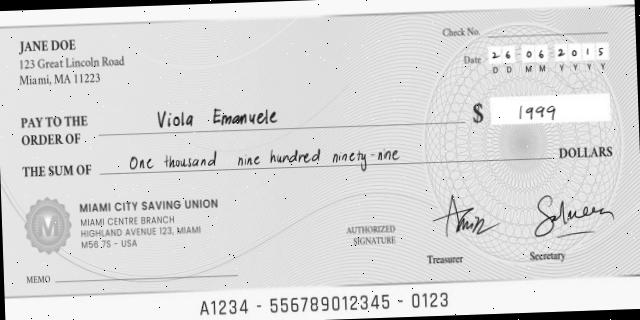 JANE DOE
123 Great Lincoln Road
Miami, MA 11223
Check No.
Date 26 06 2015
D D M M Y Y Y Y
PAY TO THE
ORDER OF Viola Emanuele
$ 1999
THE SUM OF One thousand nine hundred ninety-nine DOLLARS
M
MIAMI CITY SAVING UNION
MIAMI CENTRE BRANCH
HIGHLAND AVENUE 123, MIAMI
M56 7S - USA
AUTHORIZED
SIGNATURE
Treasurer
Secretary
MEMO
A1234 - 556789012345 - 0123